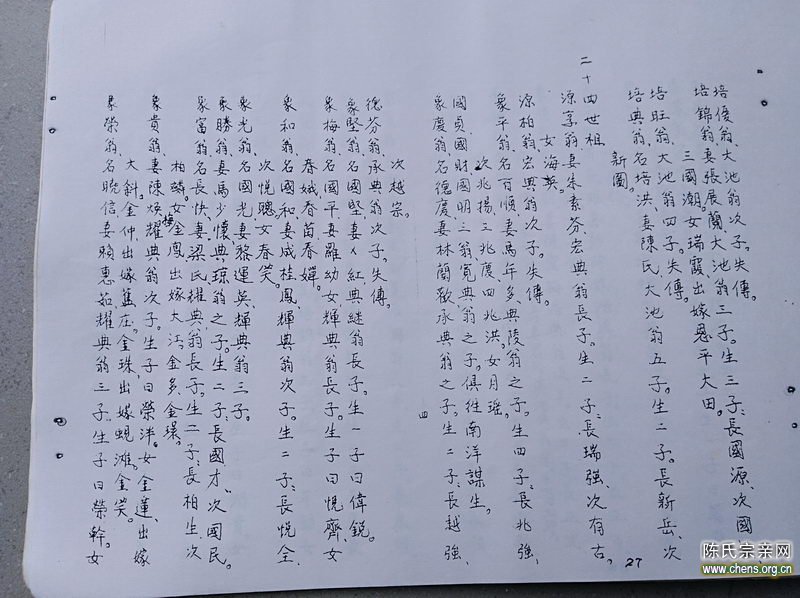 培優翁、大池翁次子。失傳。
培錦翁、妻張展蘭、大池翁三子。生三子：長國源、次國
三國潮。女瑞霞、出嫁恩平大田。
培旺翁、大池翁四子。失傳。
培典翁、名培洪、妻陳氏、大池翁五子。生二子。長新岳、次
新圖。
二十四世祖
源享翁、妻朱素芬、宏典翁長子。生二子：長瑞強、次有古。
女海英
源柏翁、宏典翁次子。失傳。
象平翁、名百順、妻馬年多、典陵翁之子。生四子：長兆強、
次兆揚、三兆慶、四兆洪。女月瑤。
國貞、國財、國明三翁、寬典翁之子。俱往南洋謀生。
象慶翁、名德慶、妻林蘭歡、承典翁之子。生二子：長越強、
次越宗。
德芬翁、承典翁次子。失傳。
象堅翁、名國堅、妻 紅、典繼翁長子。生一子曰偉銳。
象梅翁、名國平、妻羅幼女、輝典翁長子。生子曰悅齊、女
春娥、春茵、春嬋。
象和翁、名國和、妻成桂鳳、輝典翁次子。生二子：長悅全、
次悅聰。女春笑。
象光翁、名國光、妻黎運英、輝典翁三子。
象勝翁、妻馬少懷、典琼翁之子。生二子：長國才、次國民。
象富翁、名長快、妻梁氏、耀典翁長子。生二子：長柏生、次
柏麟。女金鳳出嫁大江。金多、金環。
象貴翁、妻陳煥 、耀典翁次子。生子曰榮泮。女金蓮、出嫁
大斜。金仲出嫁舊庄。金珠、出嫁蜆灘。金笑。
象榮翁、名晚信、妻賴惠如、耀典翁三子。生子曰榮幹。女
四
27
陈氏宗亲网
www.chens.org.cn